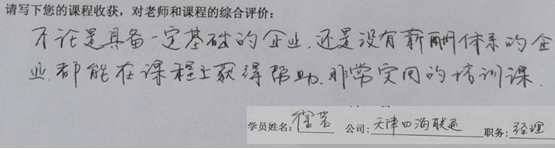 请写下您的课程收获，对老师和课程的综合评价：
不论是具备一定基础的企业，还是没有薪酬体系的企
业，都能在课程上获得帮助，非常实用的培训课。
学员姓名： 公司：天津四海联运 职务：经理